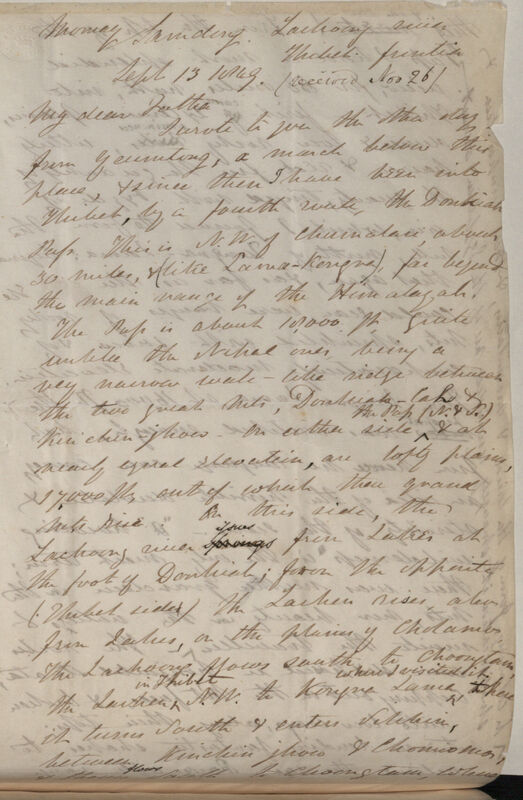 Momay Samdong. Lachoong river
Thibet frontier
Sept 13 1849. (received Nov 26)
My dear Father
I wrote to you the other day
from Yeumtong, a march below this
place, & since then I have been into
Thibet, by a fourth route, the Donkiah
Pass. This is N.W. of Chamalari, about
30 miles, & (like Lama-Kongra), far beyond
the main range of the Himalayah.
The Pass is about 18000 ft quite
unlike the Nepal ones being a
very narrow wall-like ridge between
the two great Mts, Donkiah-Lah &
Kinchinjhow - On either side, the Pass (N. & S.) & at
nearly equal elevation, are lofty plains,
17,000 ft, out of which these grand
Mts rise: On this side, the
Lachoong river Springs flows from Lakes at
the foot of Donkiah; from the opposite
(Thibet side) the Lachen rises, also
from Lakes, on the plains of Cholamoo
The Lachoong flows south to Choongtam,
the Lachen, in Thibet N.W. to Kongra Lama, where I visited it, & there
it turns South & enters Sikkim,
between Kinchinjhow & Chomiomo,
flows to Choongtam